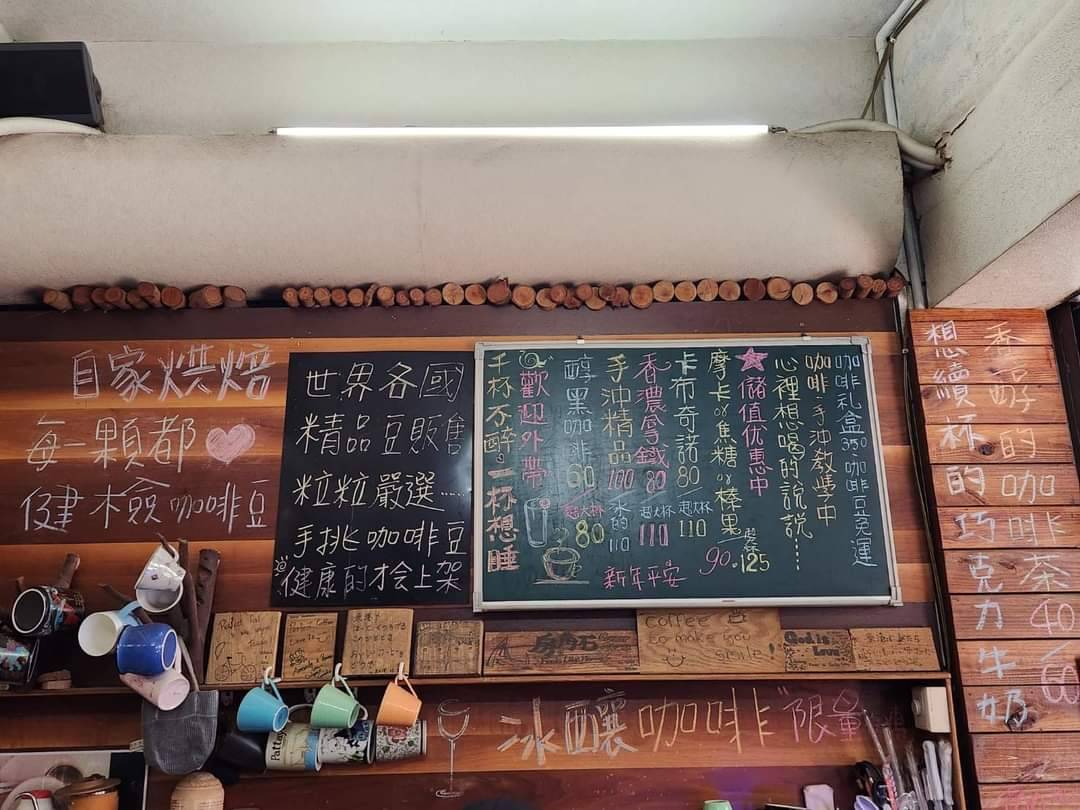 自家烘焙
每一顆都
健檢咖啡豆
世界各國
精品豆販售
粒粒嚴選.....
手挑咖啡豆
健康的才会上架
咖啡礼盒350-咖啡豆免運
咖啡手沖教學中
心裡想喝的說說......
儲值优惠中
摩卡or焦糖or榛果
90. 125
卡布奇諾 80
超大杯
110
香濃拿鐵 80
超大杯
110
手沖精品 100
冰的
110
醇黑咖啡 60
超大杯
80
歡迎外帶
千杯不醉,一杯想睡
新年平安
香醇的咖啡茶 40
想續杯的巧克力牛奶 60
coffee
so make you
smile!
God is
Love
冰釀咖啡"限量